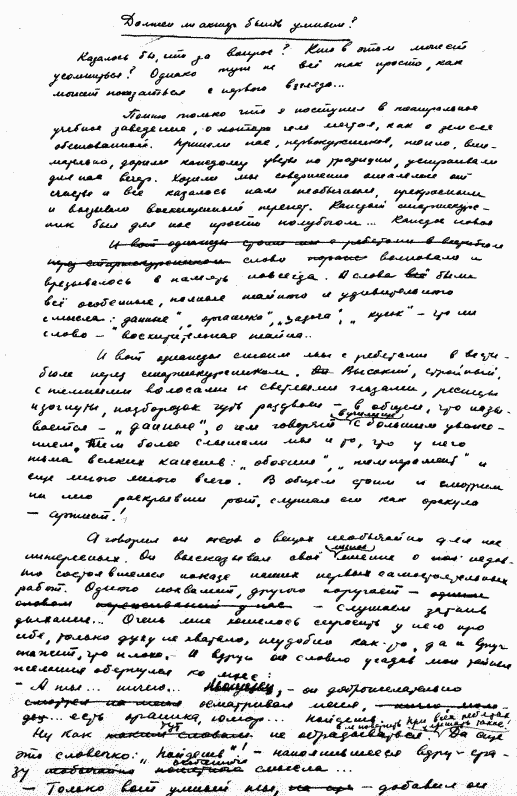 Должен ли актер быть умным?
Казалось бы, что за вопрос? Кто в этом может
усомниться? Однако тут не всё так просто, как
может показаться с первого взгляда...
Помню только что я поступил в театральное
учебное заведение, о котором мечтал, как о земле
обетованной. Приняли нас, первокурсников, тепло, вни-
мательно, дарили каждому цветы по традиции, устраивали
для нас вечер. Ходили мы совершенно ошалелые от
счастья и все казалось нам необычным, прекрасным
и вызывало восхищенный трепет. Каждый старшекурс-
ник был для нас просто полубогом... Каждое новое
И вот однажды стоим мы с ребятами в вестибюле
перед старшекурсником слово волновало и
врезывалось в память навсегда. А слова всё были
всё особенные, полные тайного и удивительного
смысла: „данные“, „органика“, „задача“, „кусок“ – что ни
слово – восхитительная тайна..
И вот однажды стоим мы с ребятами в вести-
бюле перед старшекурсником. Высокий, стройный,
с темными волосами и светлыми глазами, ресницы
изогнуты, подбородок чуть раздвоен – в общем, что назы-
вается – „данные“, о чем говорят с большим уваже-
нием. Тем более слышали мы и то, что у него
тьма всяких качеств: „обаяние“, „темперамент“ и
еще много много всего. В общем стоим и смотрим
на него раскрывши рот, слушая его как оракула
– артист!
А говорил он о вещах необычайно для нас
интересных. Он высказывал своё личное мнение о нас недав-
но состоявшемся показе наших первых самостоятельных
работ. Одного похвалит, другого поругает –
– слушаем затаив
дыхание... Очень мне хотелось спросить у него про
себя, только духу не хватало, неудобно как-то, да и вдруг
скажет, что плохо. – И вдруг он словно угадав мои тайные
желания обернулся ко мне:
– А ты... ничего... – он доброжелательно
смотрел на меня осматривал меня,
есть органика, юмор... найдешь
Ну как тут не обрадоваться Да еще
это словечко: „найдешь“! – наполнившееся вдруг сра-
зу смысла ...
– Только вот умный ты, – добавил он